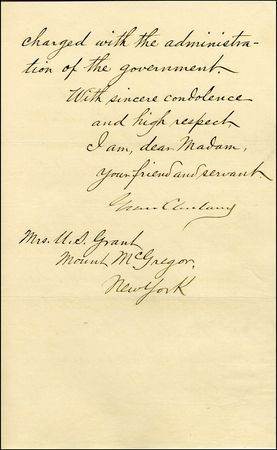 charged with the administra-
tion of the government.
With sincere condolence
and high respect
I am, dear Madam,
your friend and servant
Grover Cleveland
Mrs. U.S. Grant
Mount McGregor,
New York